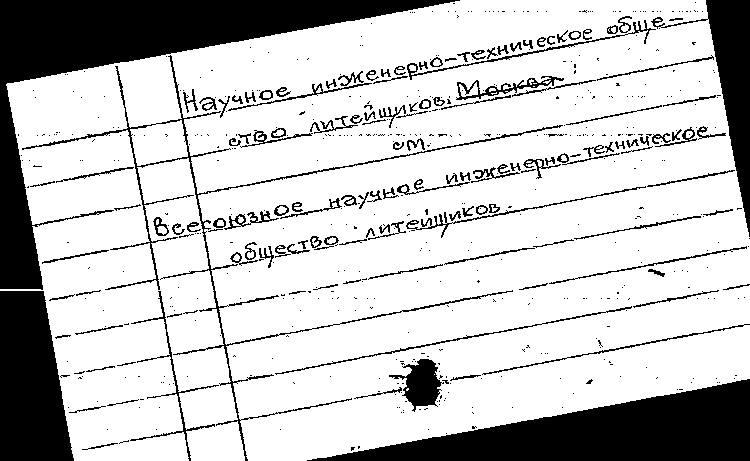 Научное инженерно-техническое обще-
ство литейщиков. Москва
см.
Всесоюзное научное инженерно-техническое
общество литейщиков.